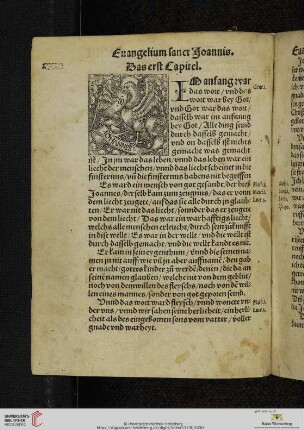 Euangelium sanct Joannis.
Das erst Capitel.
IM anfang war
das wort / vnnd das
wort war bey Got /
vnd Got war das wort /
dasselb war im anfang
bey Got / Alle ding seind
durch dasselb gemacht /
vnd on dasselb ist nichts
gemacht was gemacht
ist / In jm war das leben / vnnd das leben war ein
liecht der menschen / vnnd das liecht scheint in die
finsternus / vnnd die finsternus habens nit begriffen
Es ward ein mensch von got gesandt / der hieß
Joannes / derselb kam zum zeugnus / das er vonn
dem liecht zeuget / auff das sie alle durch jn glaub-
ten / Er war nit das liecht / sonder das er zeuget
von dem liecht / Das war ein warhafftigs liecht /
welchs alle menschen erleucht / durch sein zukunfft
in dise welt / Es war in der welt / vnnd die welt ist
durch dasselb gemacht / vnd die welt kandt es nit.
Er kam in sein eygenthum / vnd die seinen na-
men jn nit auff / wie vil jn aber auffnamen / den gab
er macht / gottes kinder zu werden / denen / die da an
seine namen glauben / welche nit von dem geblüt /
noch von dem willen des fleyschs / noch von de wil-
len eines mannes / sonder von got geporn seind.
Vnnd das wort ward fleysch / vnnd wonete vn-
der vns / vnnd wir sahen seine herlicheit / ein herli-
cheit als des eingebornen sons vom vatter / voller
gnadt vnd warheyt.
UNIVERSITÄTS-
BIBLIOTHEK
HEIDELBERG